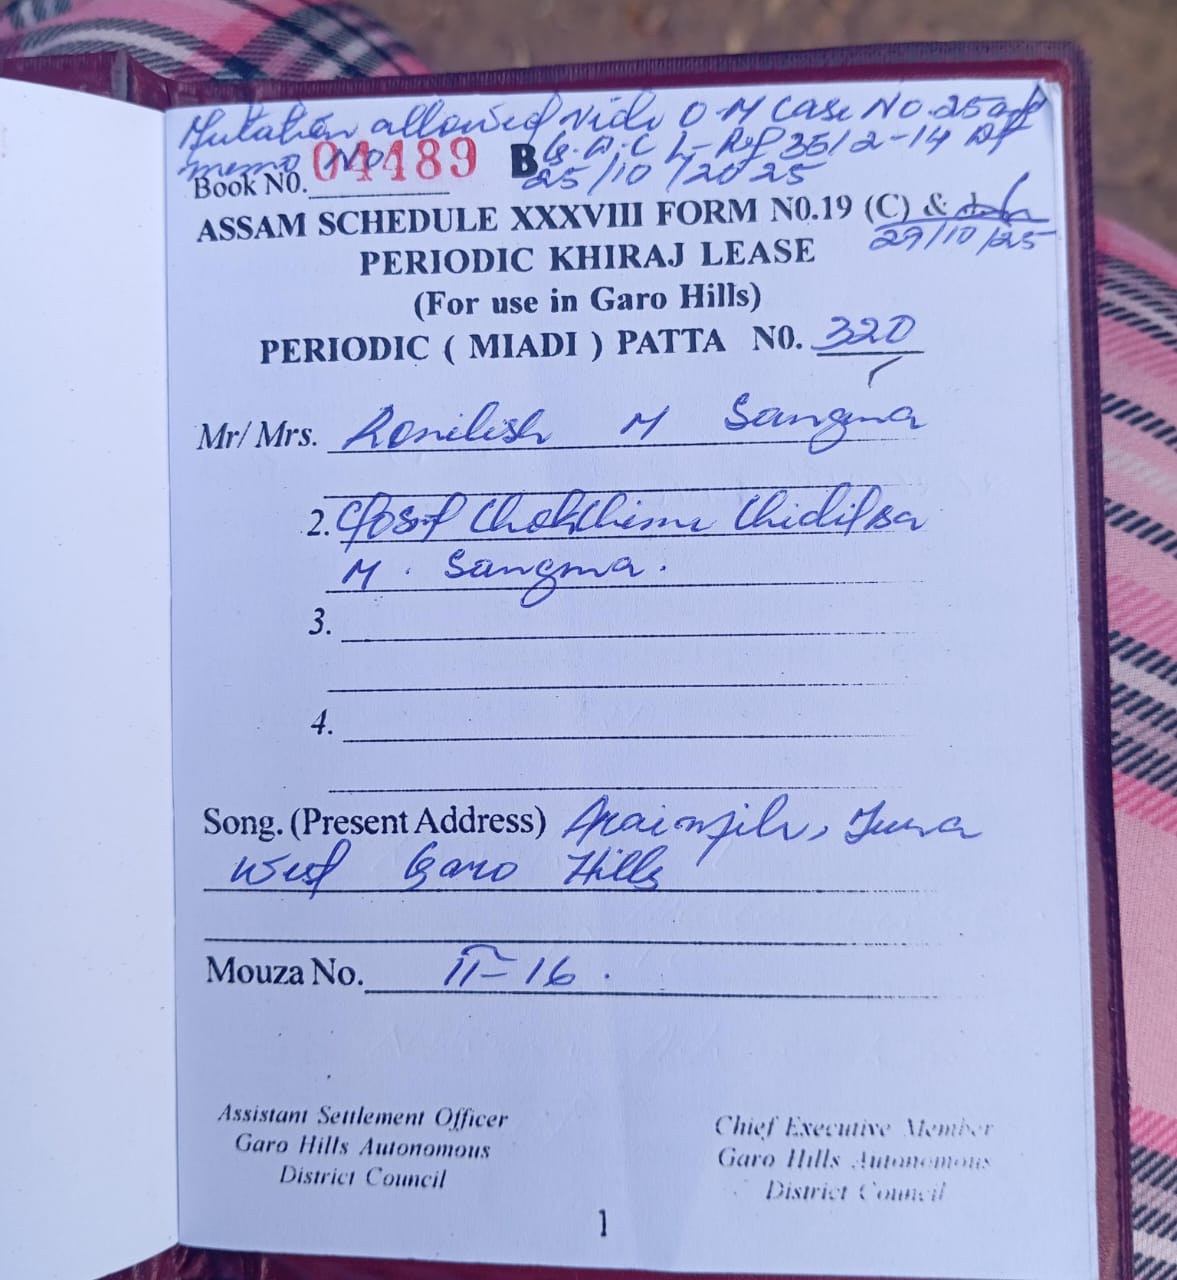 Mutation allowed vide O M Case No. 25 of
memo No G.D.C L-Ref 36/2-14 Df
Book N0. 04489 B 25/10/2025
ASSAM SCHEDULE XXXVIII FORM N0.19 (C) &
27/10/25
PERIODIC KHIRAJ LEASE
(For use in Garo Hills)
PERIODIC ( MIADI ) PATTA N0. 320
Mr/ Mrs. Ronilish M Sangma
2. Chokchime Chidilsa
M. Sangma.
3.
4.
Song. (Present Address) Tura
West Garo Hills
Mouza No. II-16.
Assistant Settlement Officer
Garo Hills Autonomous
District Council
Chief Executive Member
Garo Hills Autonomous
District Council
1